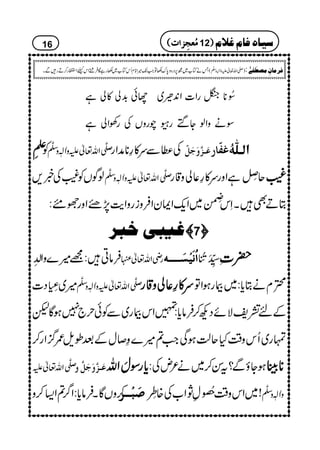 سیاہ فام غلام (12 معجزات)
16
فرمانِ مصطفیٰ
سُونا جنگل رات اندھیری چھائی بدلی کالی ہے
سونے والو جاگتے رہیو چوروں کی رکھوالی ہے
اللّٰہ غفّار عَزَّوَجَلَّ کی عطا سے سرکارِ نامدار صلَّی اللہ تعالیٰ علیہ واٰلہٖ وسلَّم کو علمِ
غیب حاصل ہے اور سرکارِ عالی وقار صلَّی اللہ تعالیٰ علیہ واٰلہٖ وسلَّم لوگوں کو غیب کی خبریں
بتاتے بھی ہیں۔ اس ضمن میں ایک ایمان افروز روایت پڑھئے اور جھومئے:
﴿7﴾ غیبی خبر
حضرتِ سیِّدتُنا اُنَیْسَہ رضی اللہ تعالیٰ عنہا فرماتی ہیں: مجھے میرے والدِ
محترم نے بتایا: میں بیمار ہوا تو سرکارِ عالی وقار صلَّی اللہ تعالیٰ علیہ واٰلہٖ وسلَّم میری عیادت
کے لئے تشریف لائے دیکھ کر فرمایا: تمہیں اس بیماری سے کوئی حرج نہیں ہوگا لیکن
تمہاری اُس وقت کیا حالت ہوگی جب تم میرے وصال کے بعد طویل عمر گزار کر
نابینا ہو جاؤ گے؟ یہ سن کر میں نے عرض کی: یارسولَ اللہ عَزَّوَجَلَّ وصلَّی اللہ تعالیٰ علیہ
واٰلہٖ وسلَّم! میں اس وقت حُصولِ ثواب کی خاطر صَبْر کروں گا۔ فرمایا: اگر تم ایسا کرو